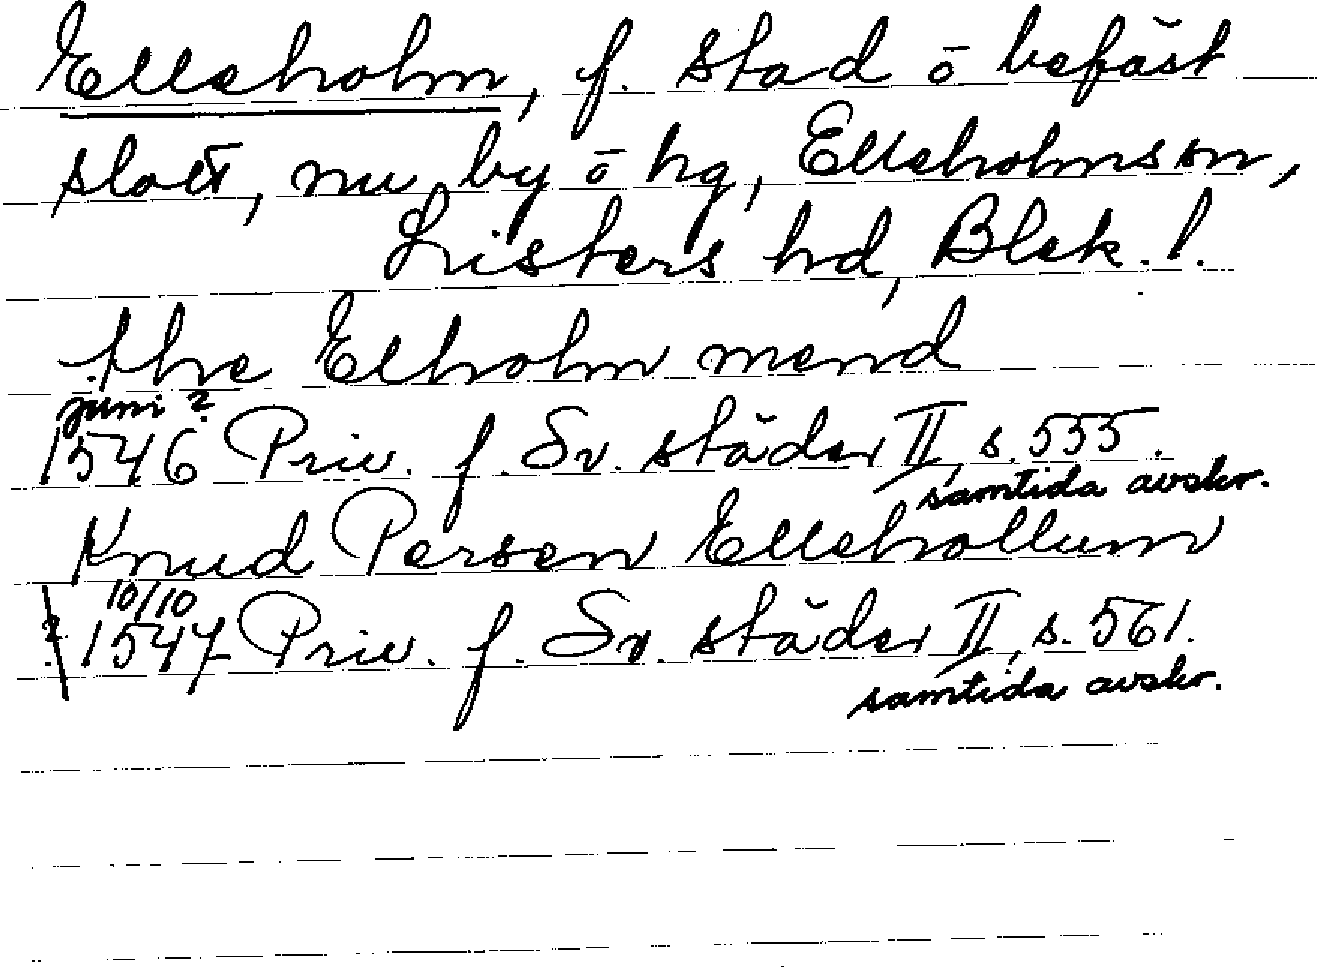 Elleholm, f. stad ō befäst
slott, nu by ō hg, Elleholms sn,
Listers hd, Blek. l.
the Elholm mend
juni ?
1546 Priv. f. Sv. städer II, s. 555.
samtida avskr.
Knud Persen Ellehollum
10/10
? 1547 Priv. f. Sv. städer II, s. 561.
samtida avskr.